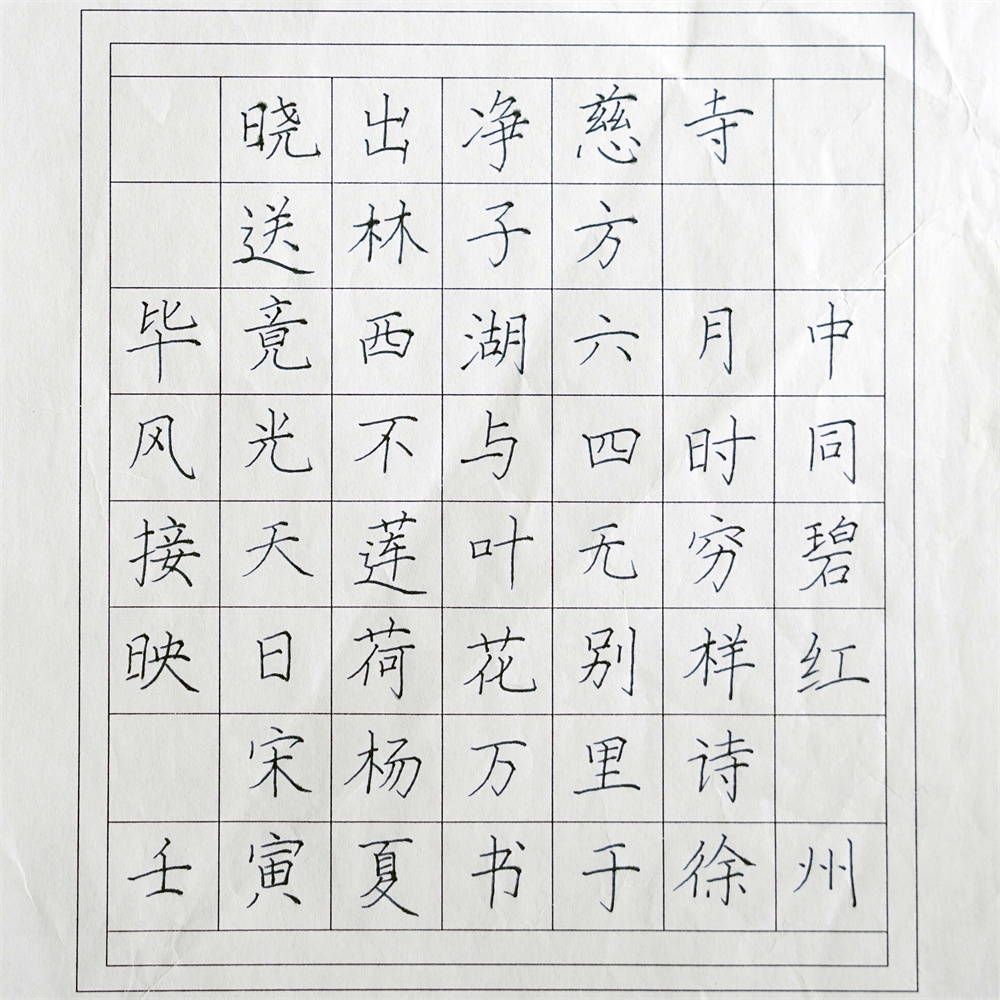 晓出净慈寺
送林子方
毕竟西湖六月中
风光不与四时同
接天莲叶无穷碧
映日荷花别样红
宋杨万里诗
壬寅夏书于徐州